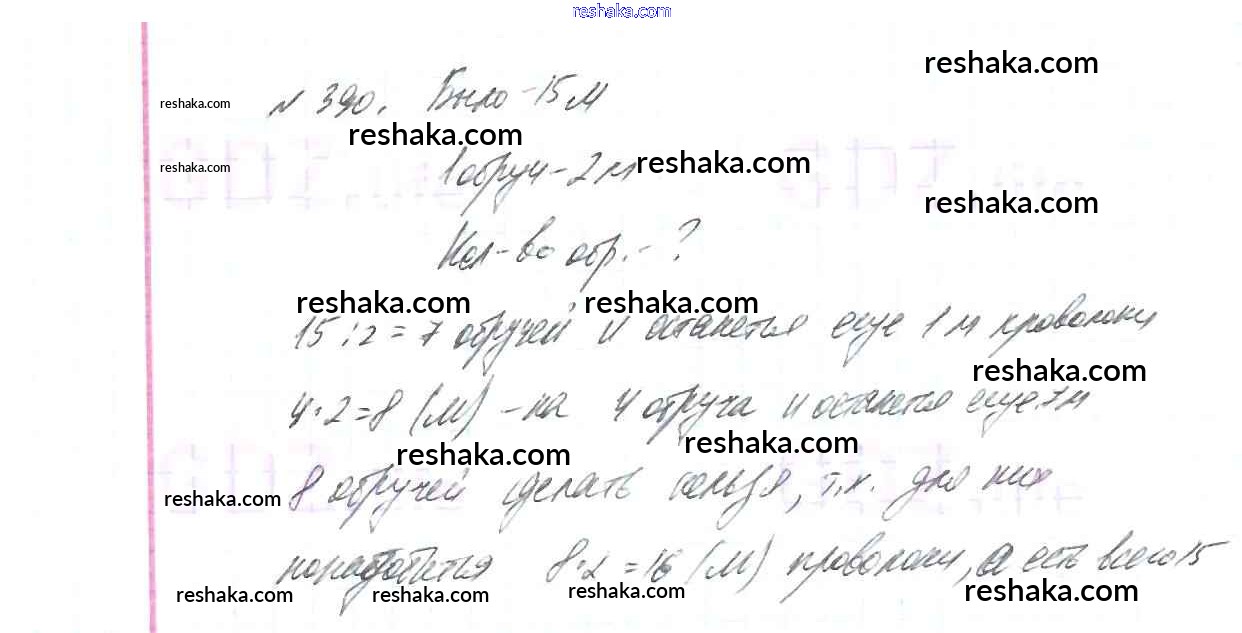 reshaka.com
reshaka.com
reshaka.com № 390. Было - 15 м
reshaka.com
reshaka.com 1 обруч - 2 м reshaka.com
reshaka.com
Кол-во обр. - ?
reshaka.com reshaka.com
15 : 2 = 7 обручей и останется еще 1 м проволоки
reshaka.com
4 · 2 = 8 (м) - на 4 обруча и останется еще 7 м
reshaka.com reshaka.com
reshaka.com 8 обручей сделать нельзя, т.к. для них
понадобится 8 · 2 = 16 (м) проволоки, а есть всего 15
reshaka.com reshaka.com reshaka.com reshaka.com